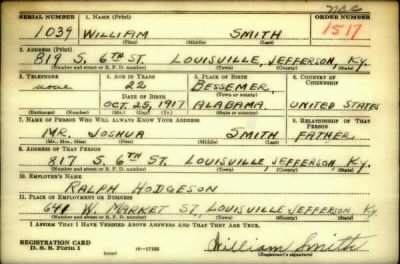 SERIAL NUMBER 1. NAME (Print) ORDER NUMBER
1039 WILLIAM SMITH 1517
(First) (Middle) (Last)
2. ADDRESS (Print)
819 S. 6TH ST. LOUISVILLE, JEFFERSON, KY.
(Number and street or R. F. D. number) (Town) (County) (State)
3. TELEPHONE 4. AGE IN YEARS 5. PLACE OF BIRTH 6. COUNTRY OF CITIZENSHIP
none 22 BESSEMER,
DATE OF BIRTH (Town or county)
OCT. 25, 1917 ALABAMA. UNITED STATES
(Exchange) (Number) (Mo.) (Day) (Yr.) (State or country)
7. NAME OF PERSON WHO WILL ALWAYS KNOW YOUR ADDRESS 8. RELATIONSHIP OF THAT PERSON
MR. JOSHUA SMITH FATHER
(Mr., Mrs., Miss) (First) (Middle) (Last)
9. ADDRESS OF THAT PERSON
817 S. 6TH ST. LOUISVILLE, JEFFERSON, KY.
(Number and street or R. F. D. number) (Town) (County) (State)
10. EMPLOYER'S NAME
RALPH HODGESON
11. PLACE OF EMPLOYMENT OR BUSINESS
641 W. MARKET ST. LOUISVILLE JEFFERSON KY
(Number and street or R. F. D. number) (Town) (County) (State)
I AFFIRM THAT I HAVE VERIFIED ABOVE ANSWERS AND THAT THEY ARE TRUE.
REGISTRATION CARD
D. S. S. FORM 1 16-17105 William Smith
(Registrant's signature)